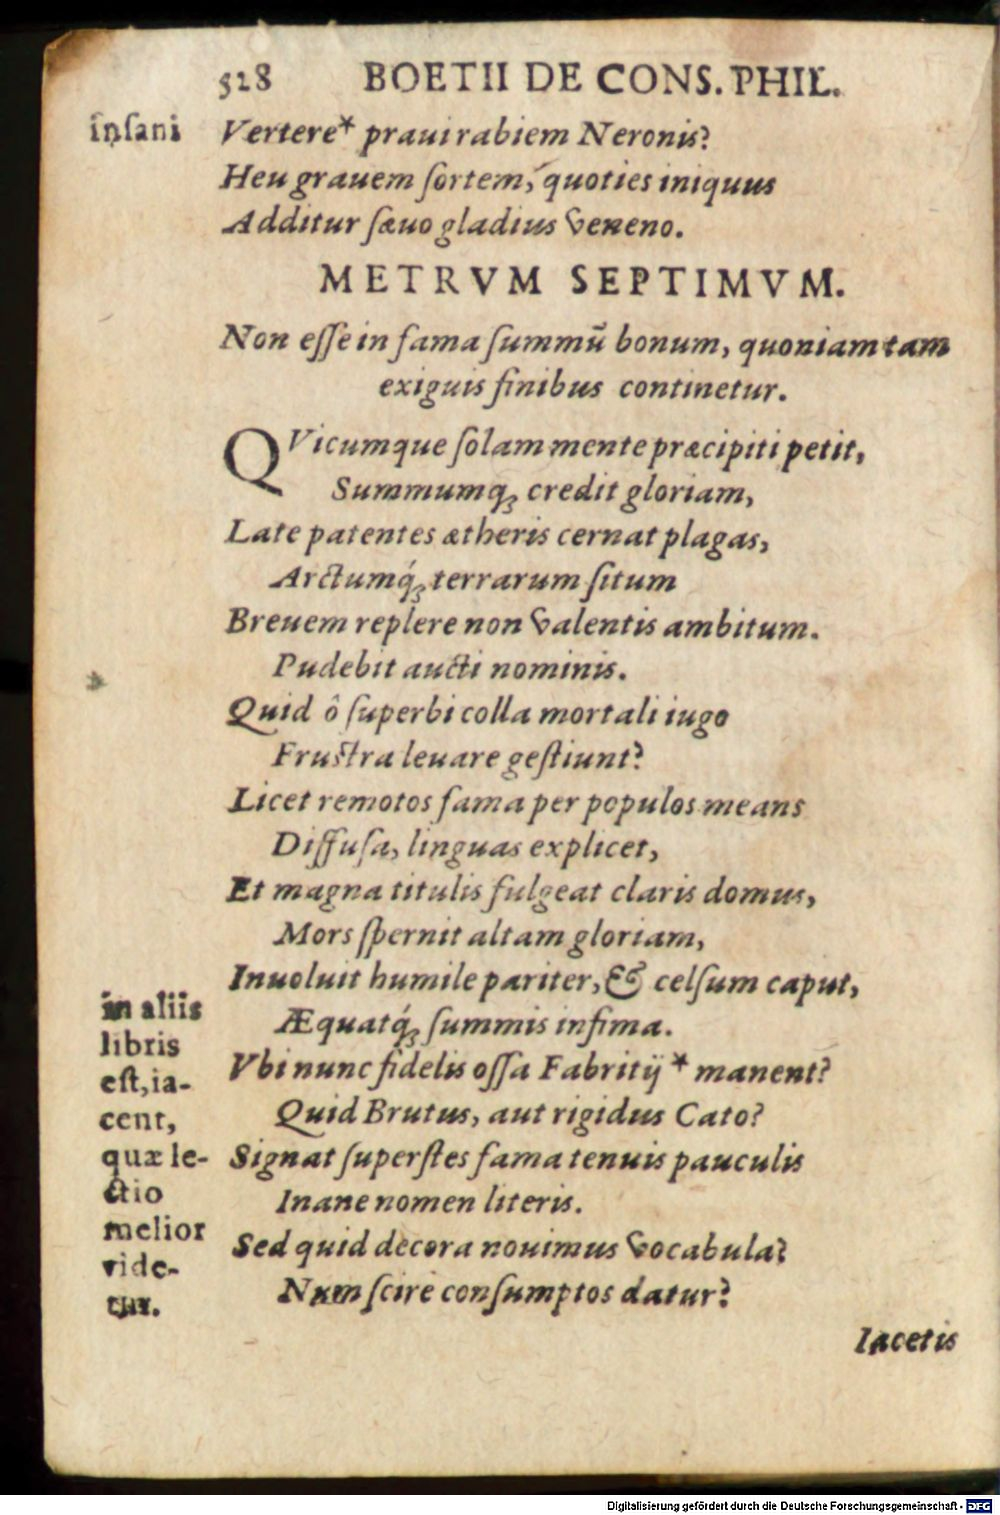 528 BOETII DE CONS. PHIL.
insani
Vertere* praui rabiem Neronis?
Heu grauem sortem, quoties iniquus
Additur sæuo gladius veneno.
METRVM SEPTIMVM.
Non esse in fama summũ bonum, quoniam tam
exiguis finibus continetur.
QVicumque solam mente præcipiti petit,
Summumq́; credit gloriam,
Late patentes ætheris cernat plagas,
Arctumq́; terrarum situm
Breuem replere non valentis ambitum.
Pudebit aucti nominis.
Quid ô superbi colla mortali iugo
Frustra leuare gestiunt?
Licet remotos fama per populos means
Diffusa, linguas explicet,
Et magna titulis fulgeat claris domus,
Mors spernit altam gloriam,
Inuoluit humile pariter, & celsum caput,
Æquatq́; summis infima.
Vbi nunc fidelis ossa Fabritij * manent?
Quid Brutus, aut rigidus Cato?
Signat superstes fama tenuis pauculis
Inane nomen literis.
Sed quid decora nouimus vocabula?
Num scire consumptos datur?
in aliis
libris
est, ia-
cent,
quæ le-
ctio
melior
vide-
tur.
Iacetis
Digitalisierung gefördert durch die Deutsche Forschungsgemeinschaft - DFG